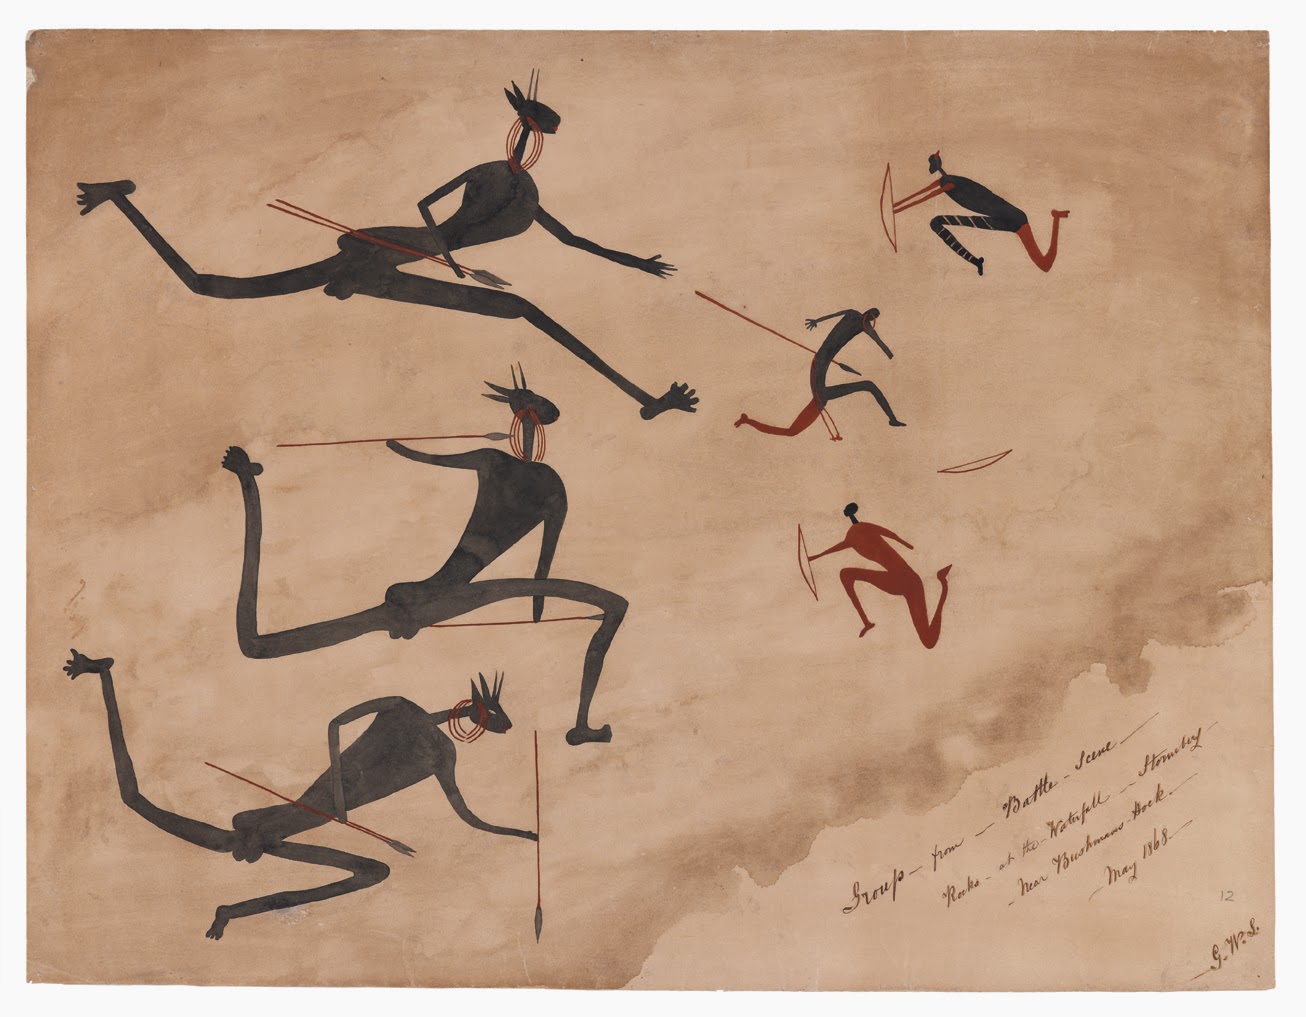 Group - from - Battle - Scene -
Rocks - at the - Waterfall - Stormberg
- Near Bushmans - Hoek -
- May 1868 -
12
G. W. S.